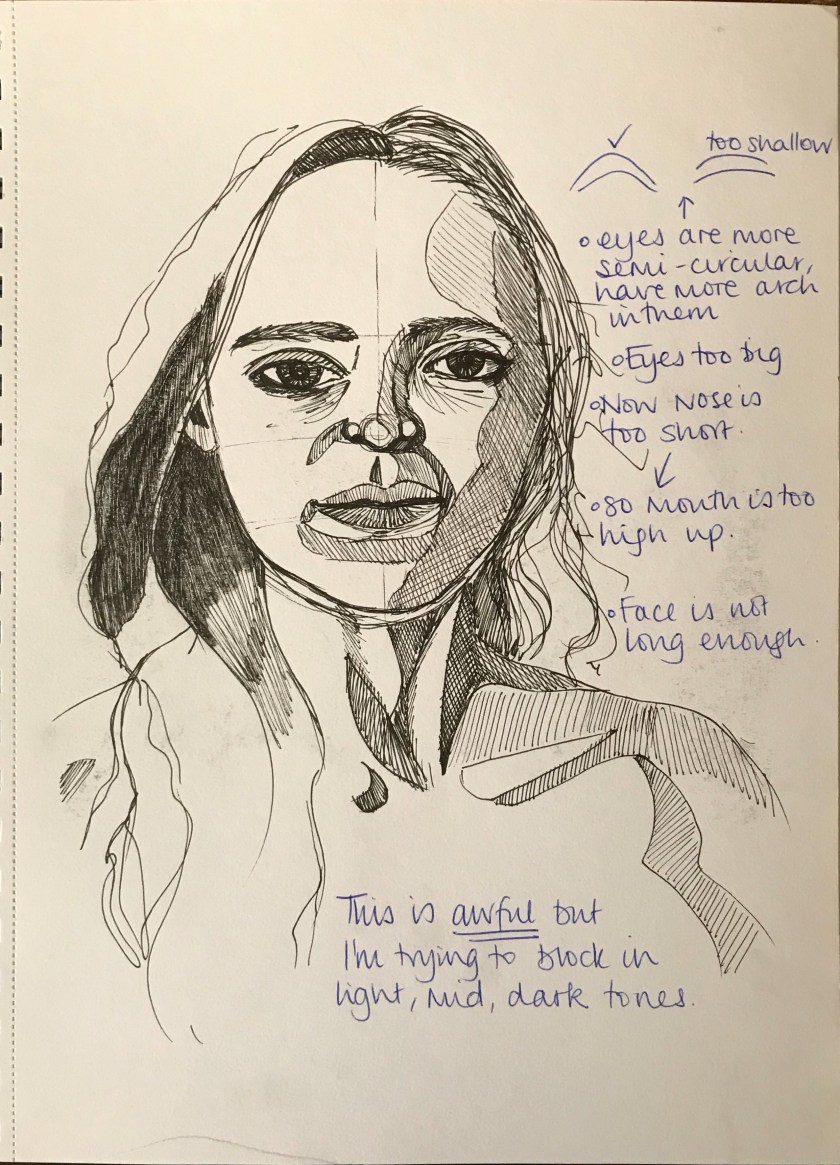 too shallow
eyes are more
semi-circular,
have more arch
in them
Eyes too big
Now Nose is
too short.
so Mouth is too
high up.
Face is not
long enough.
This is awful but
I'm trying to block in
light, mid, dark tones.